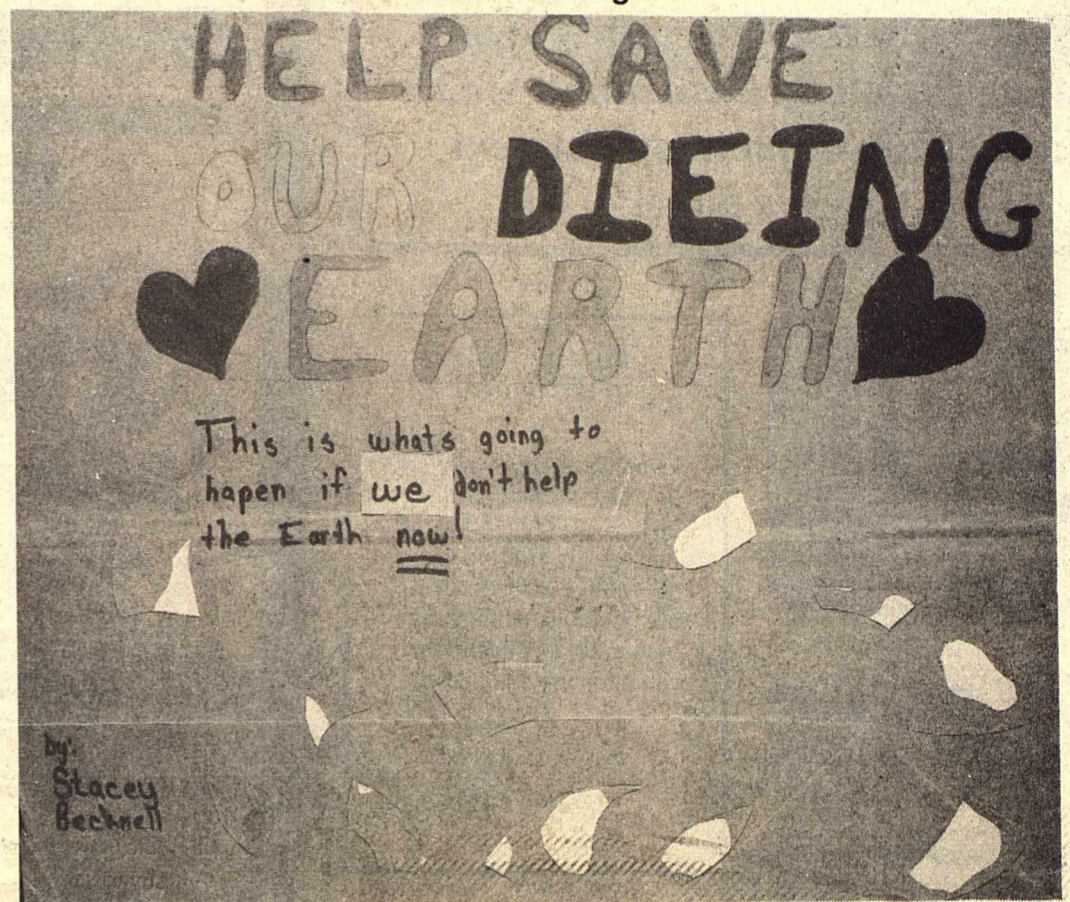 HELP SAVE
OUR DIEING
EARTH
This is whats going to
hapen if we don't help
the Earth now!
by:
Stacey
Becknell